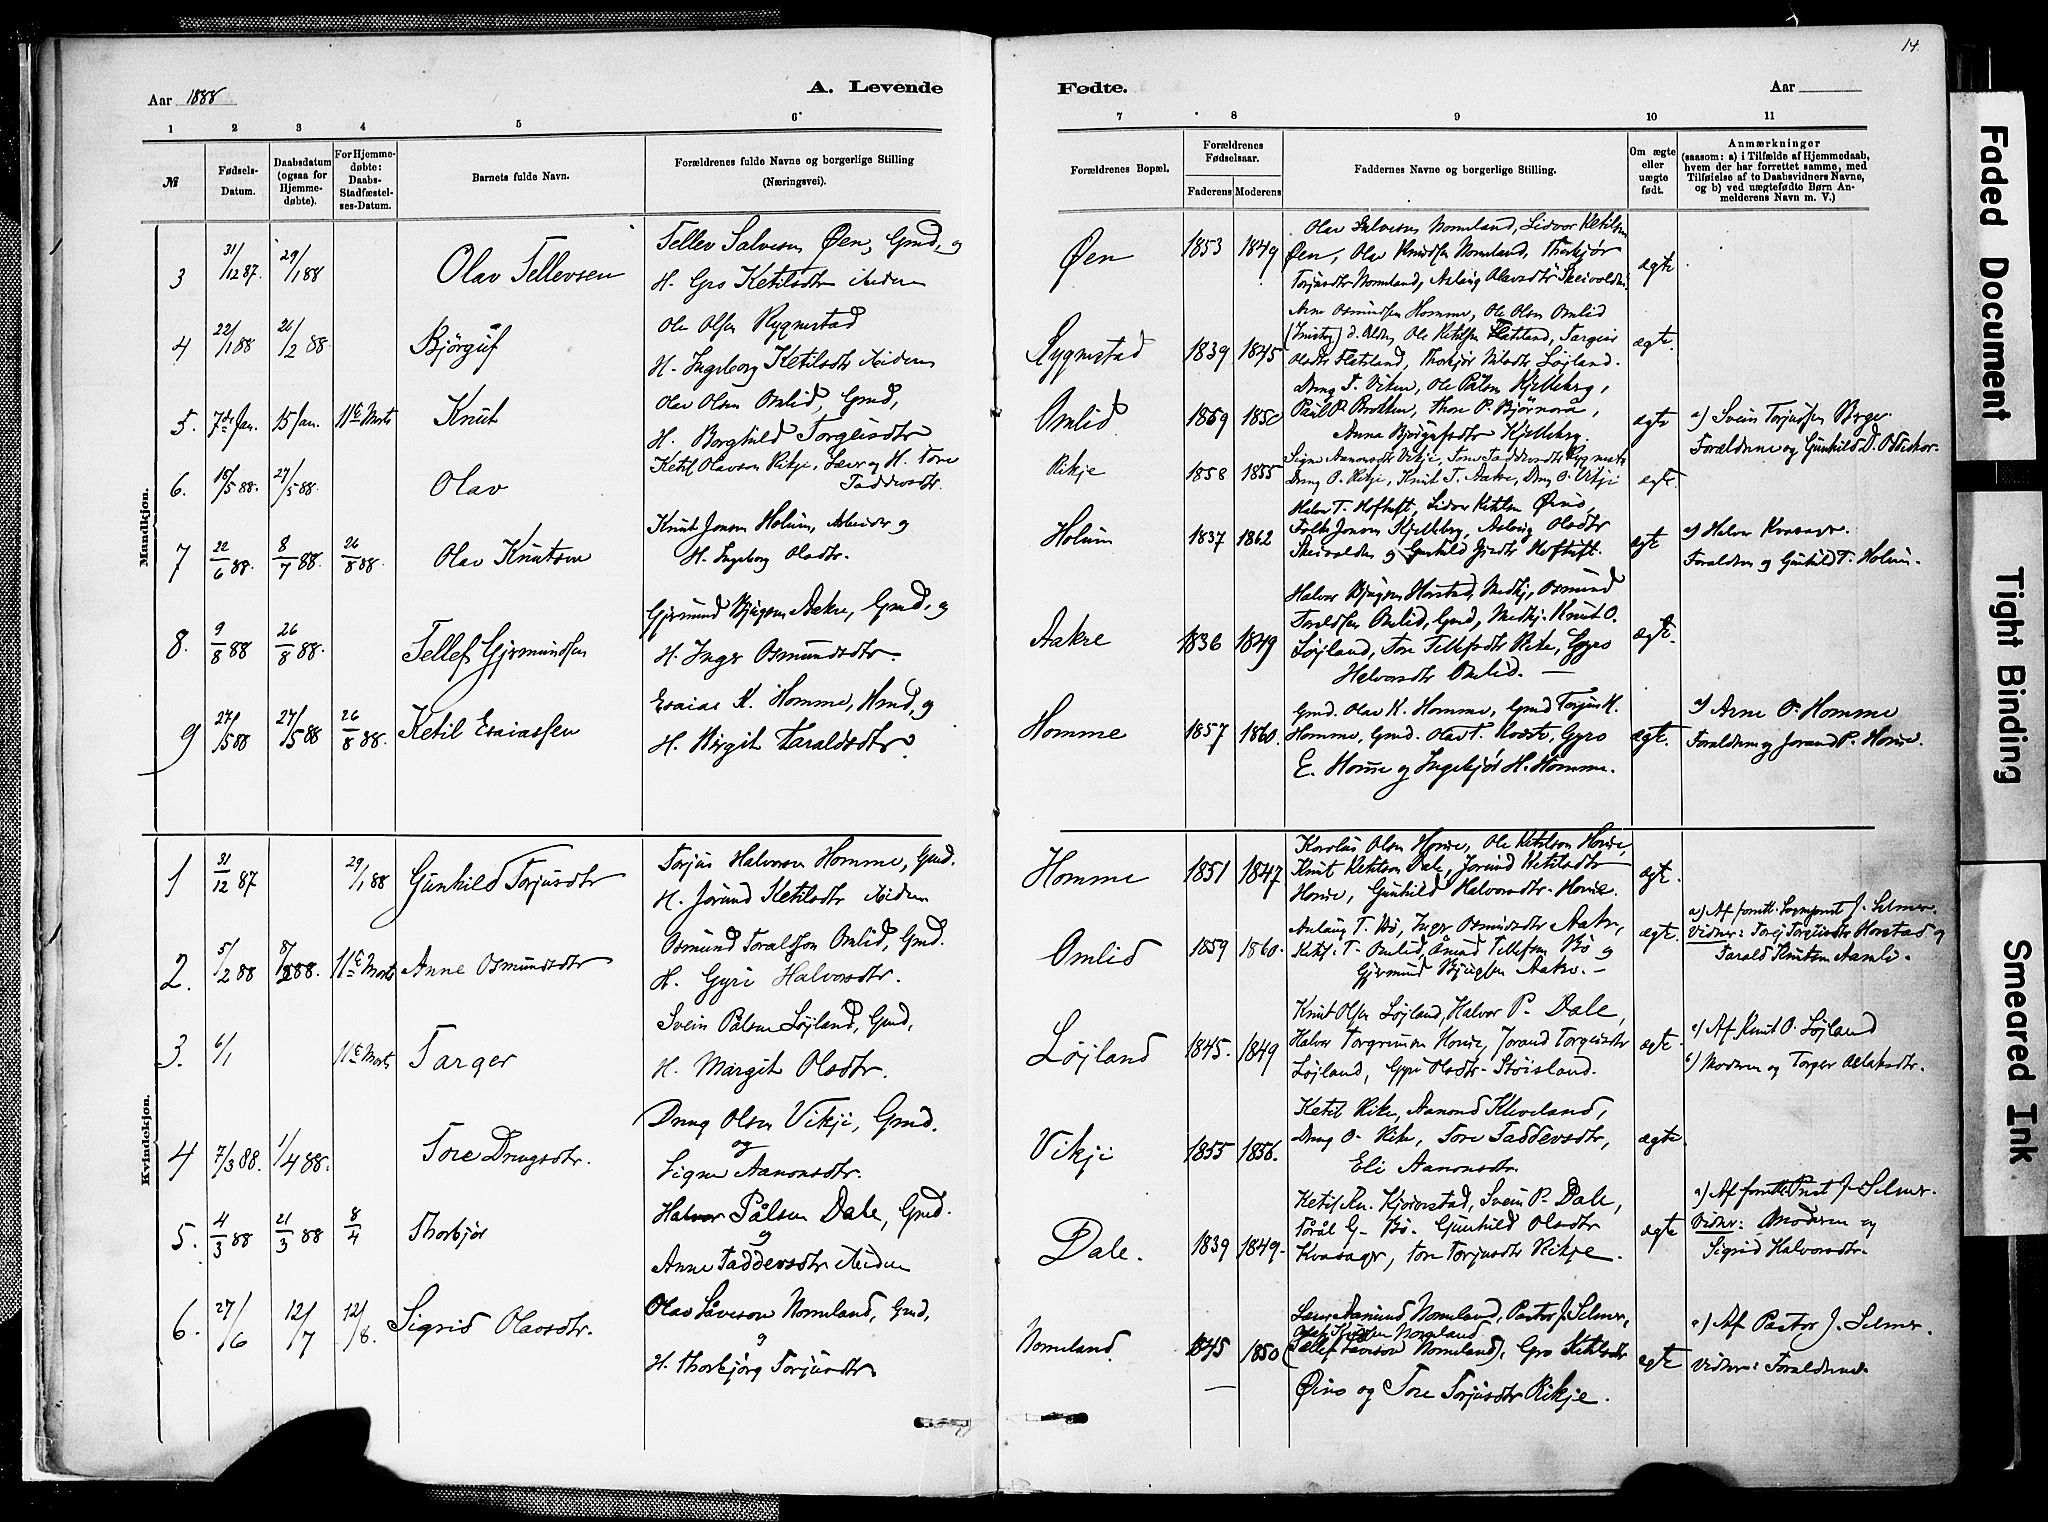 14.
Aar 1888
A. Levende
Fødte.
Aar
1 2 3 4 5 6
7 8 9 10 11
№
Fødsels-
Datum.
Daabsdatum
(ogsaa for
Hjemme-
døbte).
For Hjemme-
døbte:
Daabs-
Stadfæstel-
ses-Datum.
Barnets fulde Navn.
Forældrenes fulde Navne og borgerlige Stilling
(Næringsvei).
Forældrenes Bopæl.
Forældrenes
Fødselsaar.
Faderens Moderens
Faddernes Navne og borgerlige Stilling.
Om ægte
eller
uægte
født.
Anmærkninger
(saasom: a) i Tilfælde af Hjemmedaab,
hvem der har forrettet samme, med
Tilføielse af to Daabsvidners Navne,
og b) ved uægtefødte Børn An-
melderens Navn m. V.)
Mandkjøn.
3 31/12 87. 29/1 88 Olav Tellevsen
Tellev Salvesen Øen, Gmd, og
H. Gro Ketilsdtr
Øen 1853 1849 ægte
Olav Salvesen Nomeland, Lidvor Ketilsen
Øen, Olav Knudsen Nomeland, Thorkjør
Torjusdtr Nomeland, Aslaug Olavsdtr
4 22/1 88 26/2 88. Bjørguf
Ole Olsen Rygnestad
H. Ingeborg Ketilsdtr
Rygnestad 1839 1845 ægte.
Arne Osmundsen Homme, Ole Olsen Omlid
Ole Ketilsen Flateland, Targeir
Olsdtr Flateland, Thorkjør Nilsdtr Løjland.
5. 7de Jan. 15 Jan. 11te Marts Knut
Olav Olsen Omlid, Gmd,
H. Borghild Torgeisdtr
Omlid 1859 1850 ægte
Dreng T. Viken, Ole Pålsen Kjelleberg,
Paul P. Brotten, Thore P. Bjørnarå,
Anna Bjørgufsdtr Kjelleberg.
a) Svein Torjussen
Forældrene og Gunhild D.
6. 15/5 88. 27/5 88. Olav
Ketil Olavsen Rikje, Lærer og H. Tore
Taddevsdtr.
Rikje 1858 1855 ægte.
Signe Aanonsdtr Vikje, Tore Taddevsdtr
Dreng O. Rikje, Knut T. Aakre, Dreng O. Vikje
7 22/6 88. 8/7 88. 26/8 88. Olav Knutsen
Knut Jonsen Holum, Arbeider og
H. Ingeborg Olsdtr.
Holum 1837 1862 ægte
Halvor T. Hoftuft, Lidvor Ketilsen Øino,
Folke Jonsen Kjelleberg, Aslaug Olsdtr
og Gunhild Hoftuft.
a) Halvor Kvasager.
Forældrene og Gunhild T. Holum.
8. 9/8 88 26/8 88. Tellef Gjermundsen
Gjermund Bjugsen Aakre, Gmd, og
H. Inger Osmundsdtr.
Aakre 1836 1849 ægte.
Halvor Bjugsen Harstad, Osmund
Toraldsen Omlid, Gmd, Knut O.
Løjland, Tore Tellefsdtr Rike, Gyro
Halvorsdtr Omlid. —
9 27/5 88 27/5 88 26/8 88. Ketil Esaiassen
Esaias K. Homme, Hmd, og
H. Birgit Taraldsdtr.
Homme 1857 1860. ægte.
Gmd. Olav K. Homme, Gmd Torjus K.
Homme, Gmd. Olav T. Gyro
E. Home og Ingebjør H. Homme.
a) Arne O. Homme
Forældrene og Jorand P. Home.
Kvindekjøn.
1 31/12 87 29/1 88 Gunhild Torjusdtr
Torjus Halvorsen Homme, Gmd.
H. Jorund Ketilsdtr
Homme 1851 1847 ægte.
Karolus Olsen Home, Ole Ketilsen Home,
Knut Ketilsen Dale, Jorund Ketilsdtr
Home, Gunhild Halvorsdtr Home.
2. 5/2 88 88. 11te Marts Anne Osmundsdtr
Osmund Toraldsson Omlid, Gmd.
H. Gyri Halvorsdtr.
Omlid 1859 1860. ægte.
Aslaug T. Bø, Inger Osmundsdtr Aakre,
Ketil T. Omlid, Åmund Tellefsen Bø og
Gjermund Bjugsen Aakre. —
a) Af forrett. Sogneprest J. Selmer.
Vidner: Torej Torgeirsdtr Harstad og
Tarald Knutsen Aamli.
3. 6/1 11te Marts Targer
Svein Pålsen Løjland, Gmd,
H. Margit Olsdtr.
Løjland 1845. 1849 ægte.
Knut Olsen Løjland, Halvor P. Dale,
Halvor Torgrimsen Home, Jorand Torgeisdtr
Løjland, Gyri Olsdtr Støisland.
a) Af Knut O. Løjland
b) Moderen og Torger Aslaksdtr.
4 7/3 88. 1/4 88. Tore Drengsdtr.
Dreng Olsen Vikje, Gmd.
og
Signe Aanonsdtr.
Vikje 1855 1856. ægte.
Ketil Rike, Aanond Kleveland,
Dreng O. Rike, Tore Taddevsdtr,
Eli Aanonsdtr.
5. 4/3 88 21/3 88 8/4 Thorbjør
Halvor Pålsen Dale, Gmd.
og
Anne Taddevsdtr
Dale. 1839 1849. ægte
Ketil Kn. Kjørvestad, Svein P. Dale,
Tårål G. Bø. Gunhild Olsdtr
Kvasager, Tore Torjusdtr Rikje.
a) Af forrette Prest J. Selmer.
Vidner: Moderen og
Sigrid Halvorsdtr.
6. 27/6 12/7 12/8. Sigrid Olavsdtr.
Olav Såveson Nomeland, Gmd,
og
H. Thorbjørg Torjusdtr
Nomeland 1845 1850 ægte
—
Lærer Aamund Nomeland, Pastor J. Selmer,
Nomeland
(Tellef Såveson Nomeland), Gro Ketilsdtr
Øino og Tore Torjusdtr Rikje.
a) Af Pastor J. Selmer.
Vidner: Forældrene.
Faded Document
Tight Binding
Smeared Ink